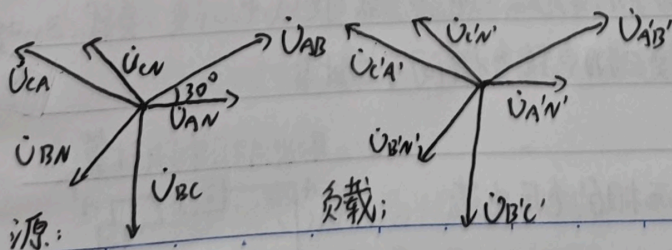 U̇CA
U̇CN
U̇AB
30°
U̇AN
U̇BN
U̇BC
源:
U̇C'A'
U̇C'N'
U̇A'B'
U̇A'N'
U̇B'N'
U̇B'C'
负载: